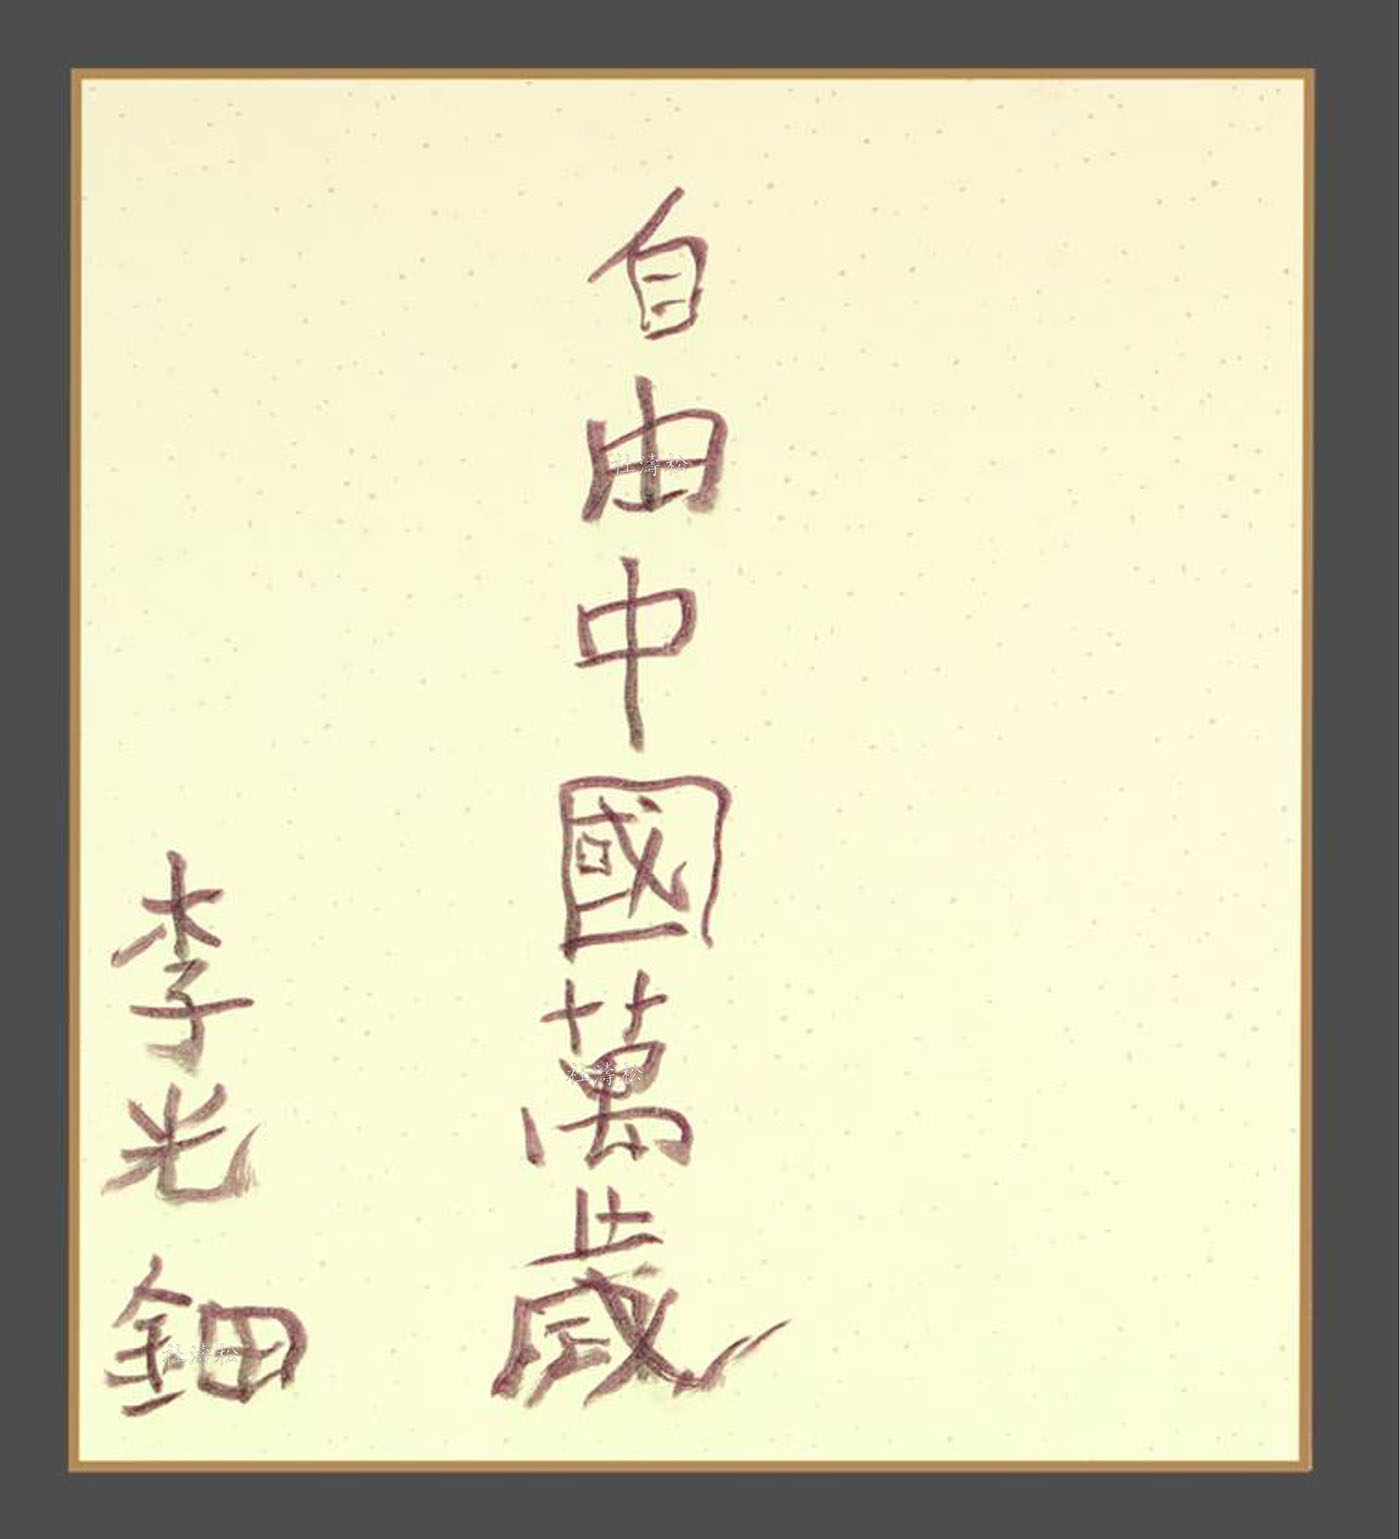 自由中國萬歲
李光鈿
杜濤松
杜濤松
杜濤松